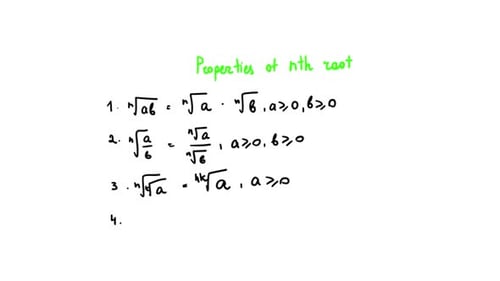 Properties of nth root
1. ⁿ√ab = ⁿ√a · ⁿ√b, a≥0, b≥0
2. ⁿ√(a/b) = ⁿ√a / ⁿ√b, a≥0, b≥0
3. ⁿ√ᵏ√a = ⁿᵏ√a, a≥0
4.